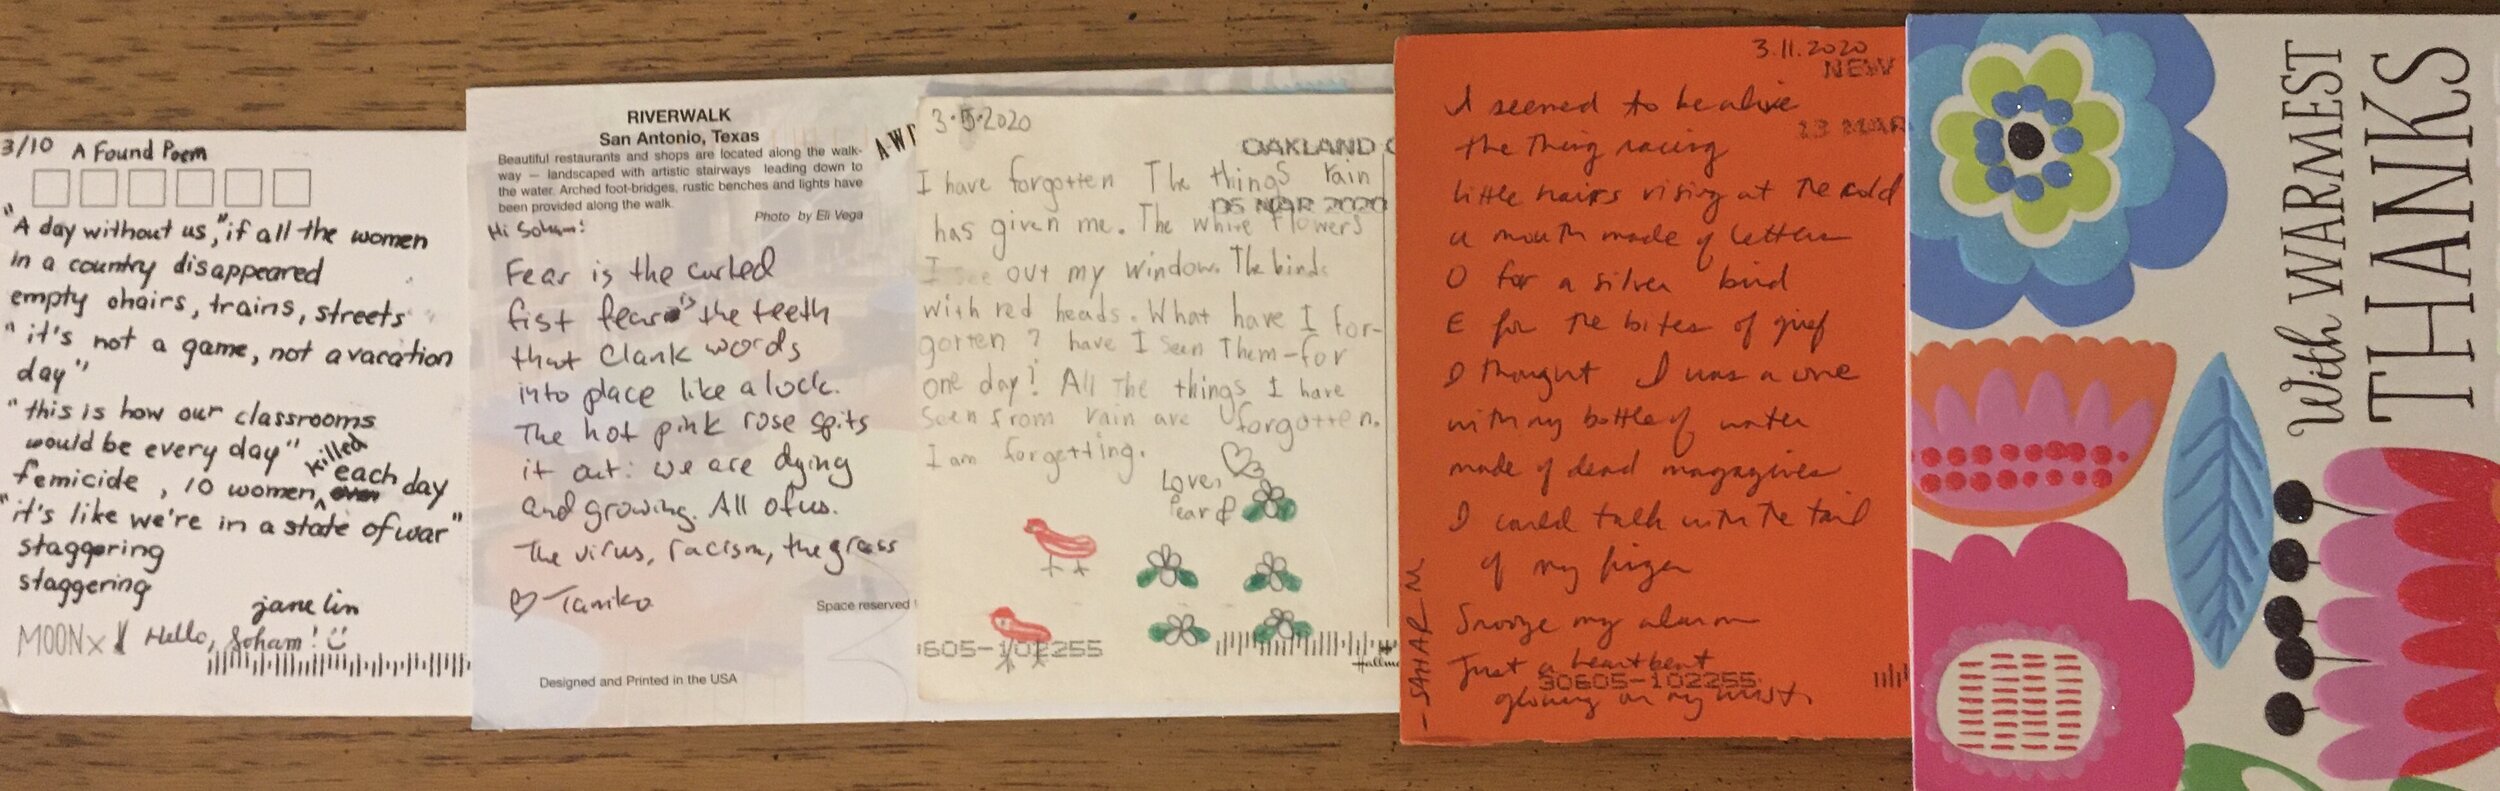 3/10 A Found Poem
"A day without us," if all the women
in a country disappeared
empty chairs, trains, streets
"it's not a game, not a vacation
day"
"this is how our classrooms
would be every day"
femicide, 10 women killed each day
"it's like we're in a state of war"
staggering
staggering
jane lin
MOON x
Hello, Soham!
RIVERWALK
San Antonio, Texas
Beautiful restaurants and shops are located along the walk-
way — landscaped with artistic stairways leading down to
the water. Arched foot-bridges, rustic benches and lights have
been provided along the walk.
Photo by Eli Vega
Hi Soham!
Fear is the curled
fist fear is the teeth
that clank words
into place like a lock.
The hot pink rose spits
it out: we are dying
and growing. All of us.
The virus, racism, the grass
♡ Taniko
Space reserved
Designed and Printed in the USA
3.5.2020
OAKLAND
05 MAR 2020
I have forgotten The things rain
has given me. The white flowers
I see out my window. The birds
with red heads. What have I for-
gotten? have I seen Them-for
one day! All The things I have
seen from rain are forgotten.
I am forgetting.
Love,
Pearl
605-102255
Hallm
3.11.2020
NEW
13 MAR
I seemed to be alive
the thing racing
little hairs rising at the cold
a mouth made of letters
O for a silver bird
E for the bites of grief
I thought I was a
with my bottle of water
made of dead magazines
I could talk with the tail
of my finger
Snooze my alarm
Just a heartbeat
glowing on my wrist.
30605-102255
- SAHAR M
With WARMEST
THANKS